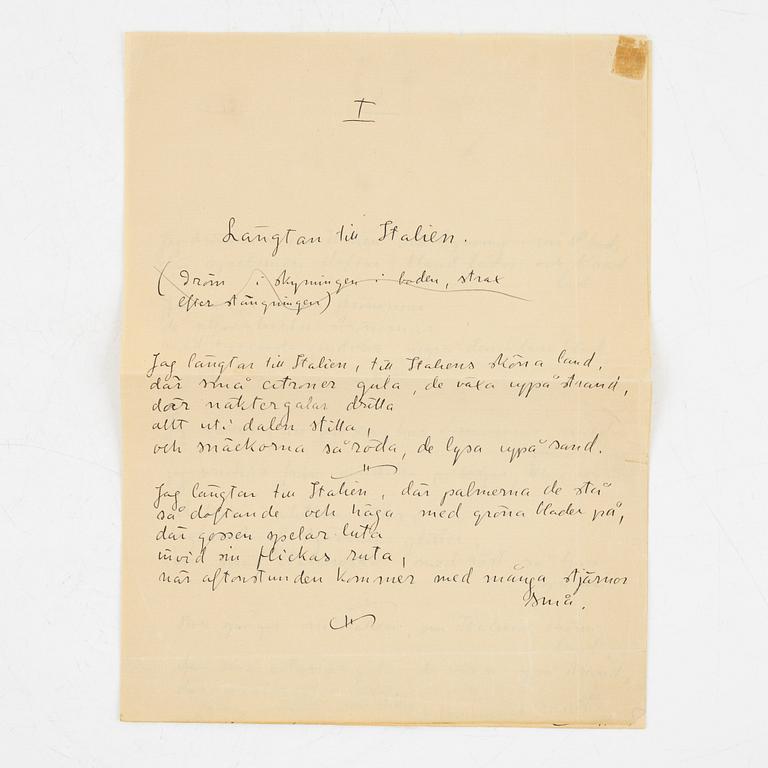 I
Längtan till Italien.
(Dröm i skymningen i boden, strax
efter stängningen)
Jag längtar till Italien, till Italiens sköna land,
där små citroner gula, de växa uppå strand,
där näktergalar drilla
allt uti dalen stilla,
och snäckorna så röda, de lysa uppå sand.
Jag längtar till Italien, där palmerna de stå
så doftande och höga med gröna blader på,
där gossen spelar luta
invid sin flickas ruta,
när aftonstunden kommer med många stjärnor
små.